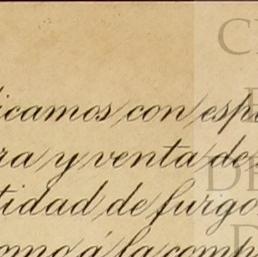 icamos con esp
ra y venta de
tidad de furgo
omo á la comp